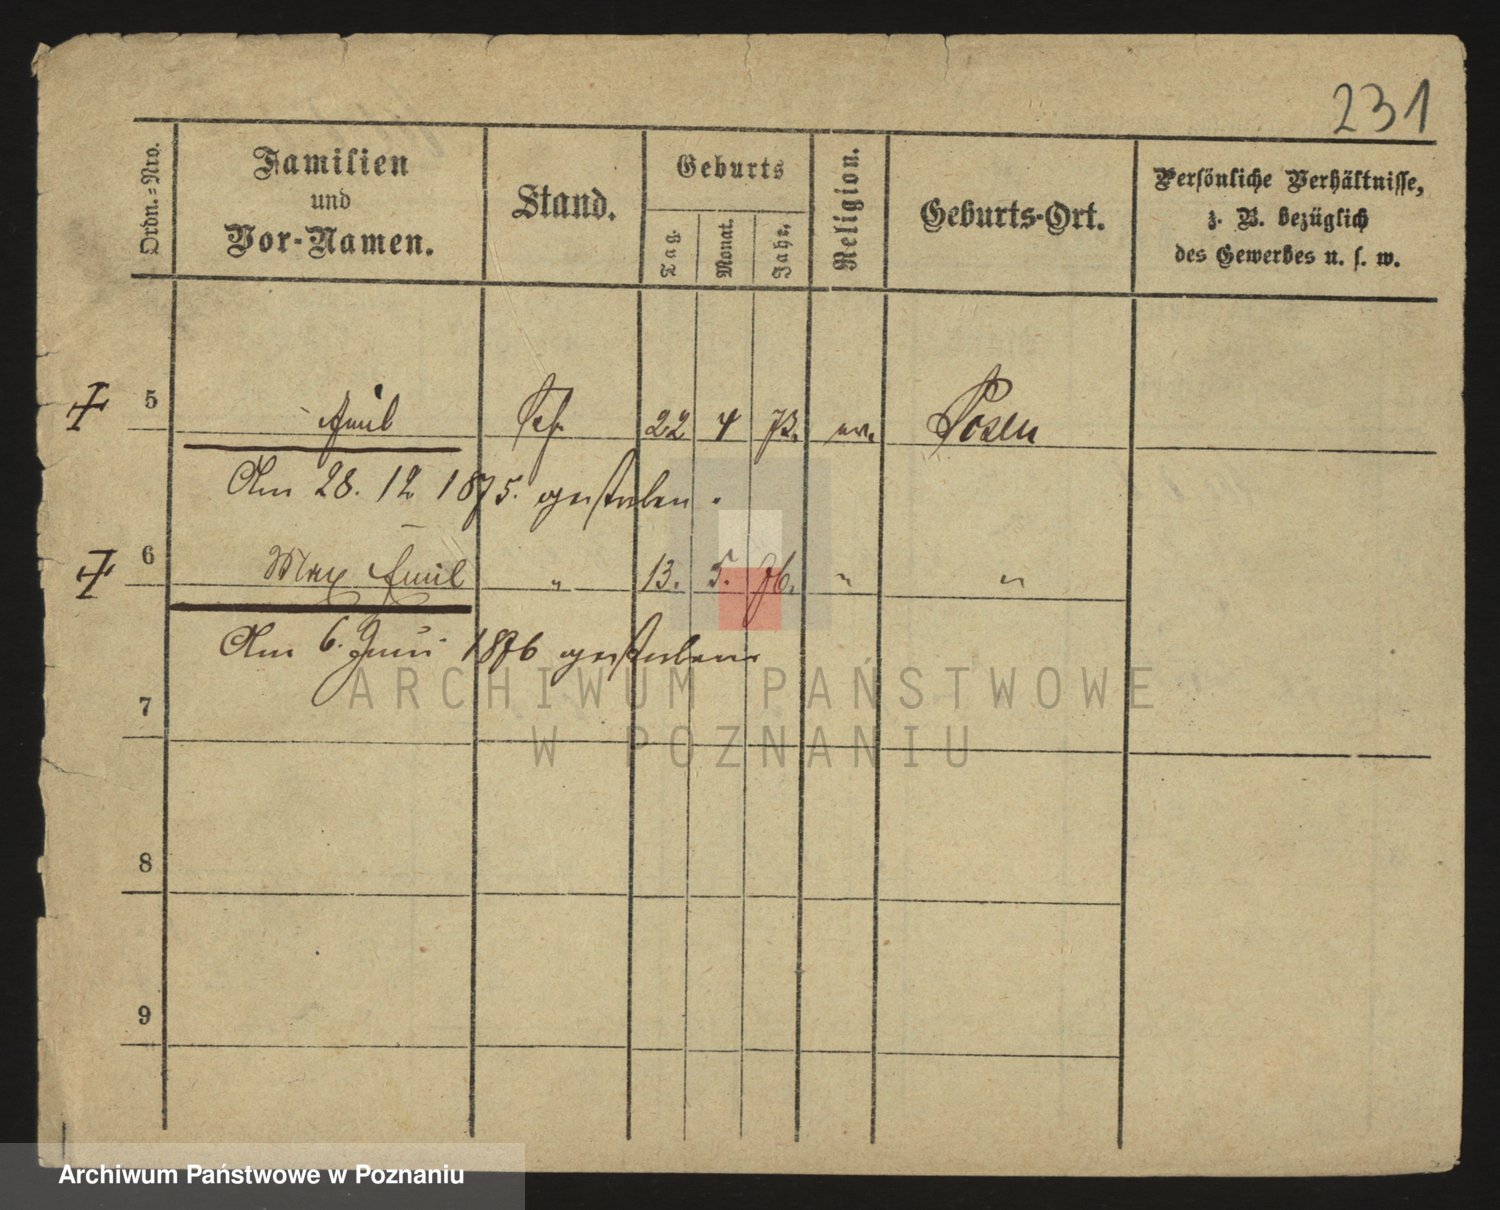 231
Ordn.=Nro.
Familien
und
Vor-Namen.
Stand.
Geburts
Tag.
Monat.
Jahr.
Religion.
Geburts-Ort.
Persönliche Verhältnisse,
z. B. bezüglich
des Gewerbes u. s. w.
5 Emil 22 4 73. ev. Posen
Am 28. 12 1875. gestorben.
6 Max Emil " 13. 5. 76. " "
Am 6. Juni 1876 gestorben
7
8
9
ARCHIWUM PAŃSTWOWE
W POZNANIU
Archiwum Państwowe w Poznaniu